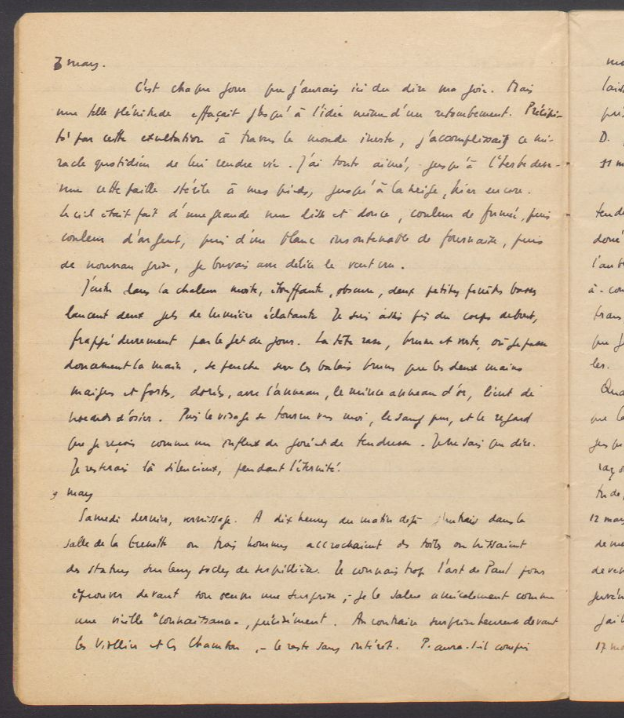 7 mars.
C'est chaque jour que j'aurais ici du dire ma joie. Mais
une telle plénitude effaçait jusqu'à l'idée même d'un retombement. Précipi-
té par cette exultation à travers le monde inerte, j'accomplissais ce mi-
racle quotidien de lui rendre vie. J'ai tout aimé, jusqu'à l'herbe deve-
nue cette paille stérile à mes pieds, jusqu'à la neige, hier encore.
Le ciel était fait d'une grande nue lisse et douce, couleur de fumée, puis
couleur d'argent, puis d'un blanc insoutenable de fournaise, puis
de nouveau grise, je buvais avec délice le vent cru.
J'entre dans la chaleur moite, étouffante, obscure, deux petites fenêtres basses
lancent deux jets de lumière éclatante. Je suis assis près du corps debout,
frappé durement par le jet de jour. La tête rase, brune et verte, où je passe
doucement la main, se penche sur les balais bruns que les deux mains
maigres et fortes, dorées, avec l'anneau, le mince anneau d'or, lient de
nœuds d'osier. Puis le visage se tourne vers moi, le sang pur, et le regard
que je reçois comme un influx de joie et de tendresse. Je ne sais que dire.
Je resterais là silencieux, pendant l'éternité.
9 mars
Samedi dernier, vernissage. A dix heures du matin déjà j'entrais dans la
salle de la Grenette où trois hommes accrochaient des toiles ou hissaient
des statues sur leurs socles de serpillière. Je connais trop l'art de Paul pour
éprouver devant son œuvre une surprise ; je la salue amicalement comme
une vieille "connaissance", précisément. Au contraire surprise heureuse devant
les Viollier et les Chambon, – le reste sans intérêt. P. aura-t-il compris
12 mars
17 m